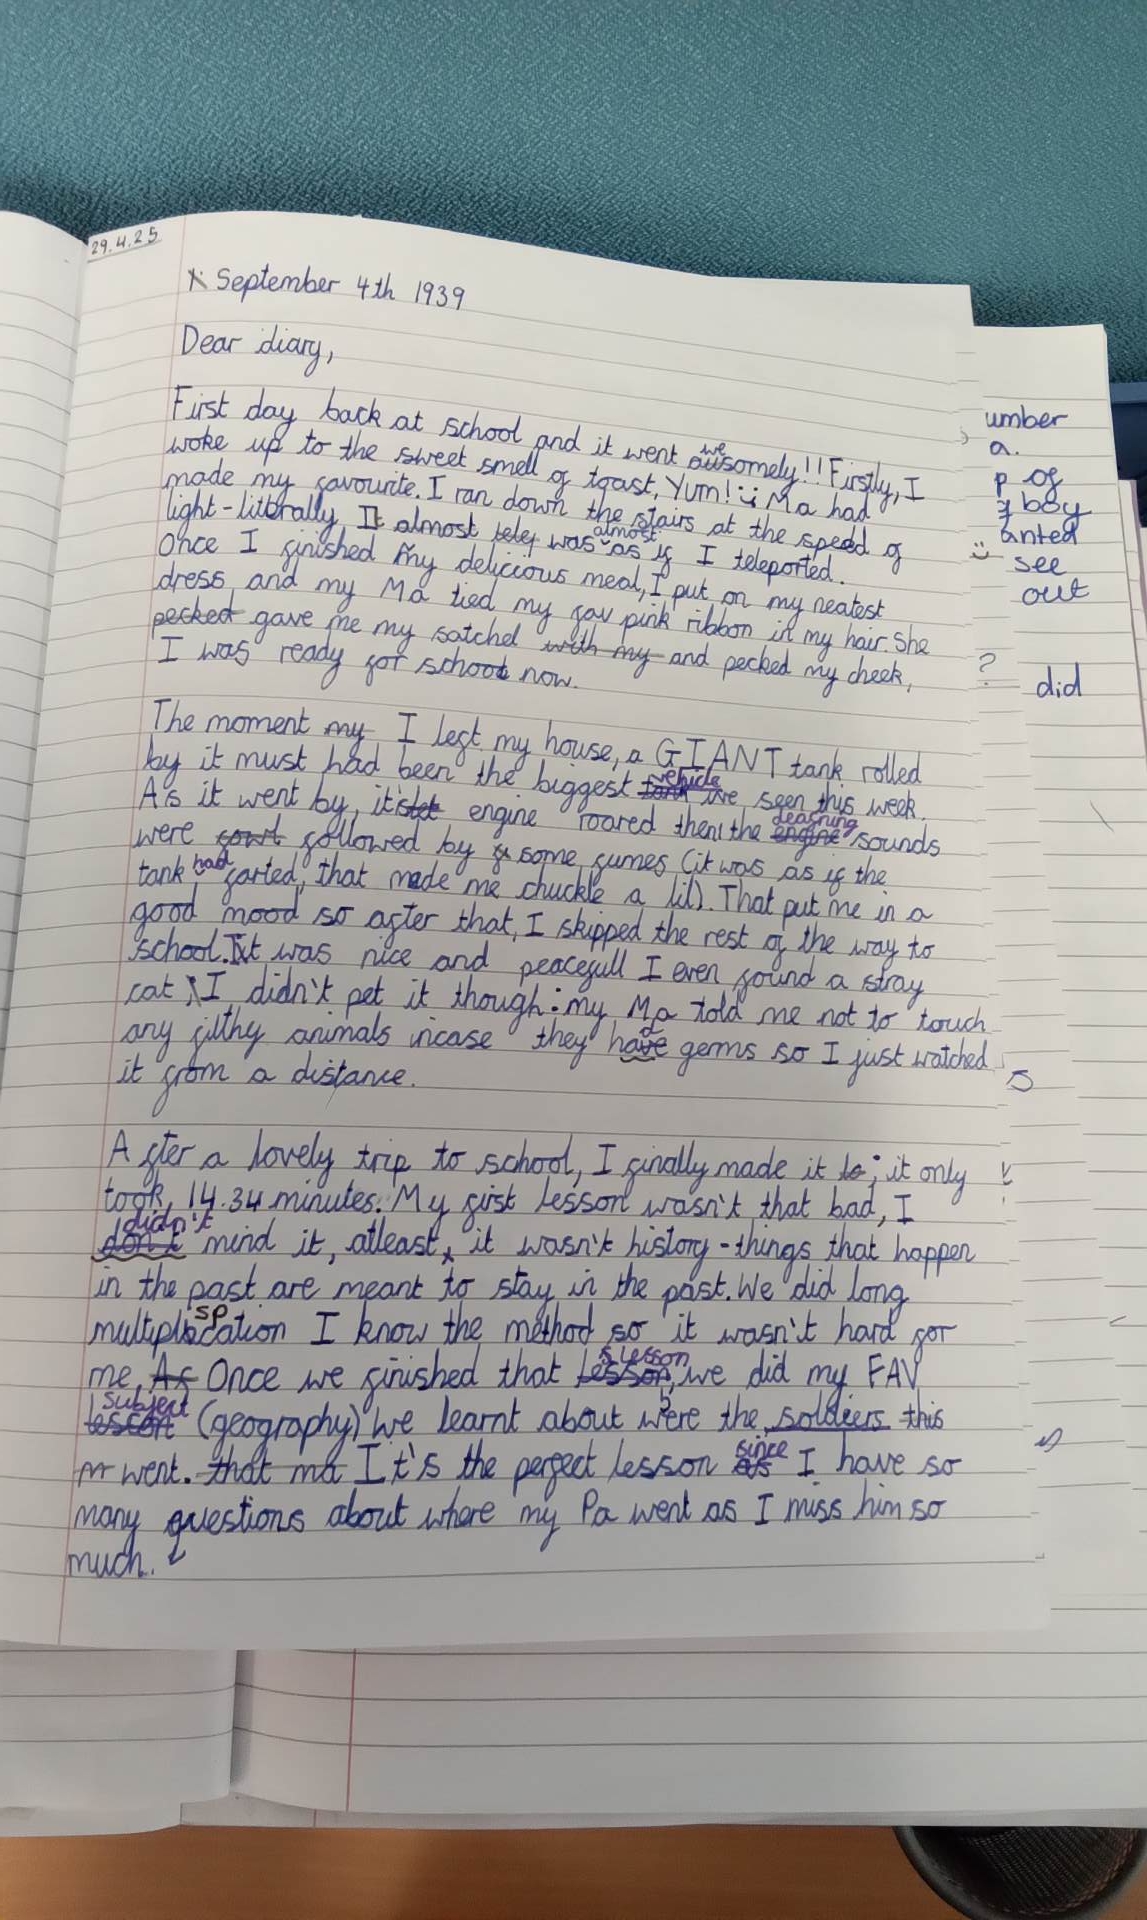 29.4.25
September 4th 1939
Dear diary,
First day back at school and it went awesomely!! Firstly, I
woke up to the sweet smell of toast, Yum! :) Ma had
made my favourite. I ran down the stairs at the speed of
light - litterally, It almost teley was almost as if I teleported.
Once I finished my delicious meal, I put on my neatest
dress and my Ma tied my fav pink ribbon in my hair. She
pecked gave me my satchel with my and pecked my cheek,
I was ready for school now.
The moment my I left my house, a GIANT tank rolled
by it must had been the biggest tank vehicle ive seen this week.
As it went by, it's engine roared then the engine deafning sounds
were followed by some fumes (it was as if the
tank had farted, that made me chuckle a lil). That put me in a
good mood so after that, I skipped the rest of the way to
school. It was nice and peacefull I even found a stray
cat I didn't pet it though: my Ma told me not to touch
any filthy animals incase they have germs so I just watched
it from a distance.
After a lovely trip to school, I finally made it to; it only
took 14.34 minutes. My first lesson wasn't that bad, I
don't didn't mind it, atleast, it wasn't history - things that happen
in the past are meant to stay in the past. We did long
sp
multiplacation I know the method so it wasn't hard for
me. As Once we finished that lesson, lesson we did my FAV
lesson subject (geography) we learnt about were the soldeers this
went. that ma It's the perfect lesson as since I have so
many questions about where my Pa went as I miss him so
much.
umber
a.
p of
y boy
anted
:) see
out
?
did